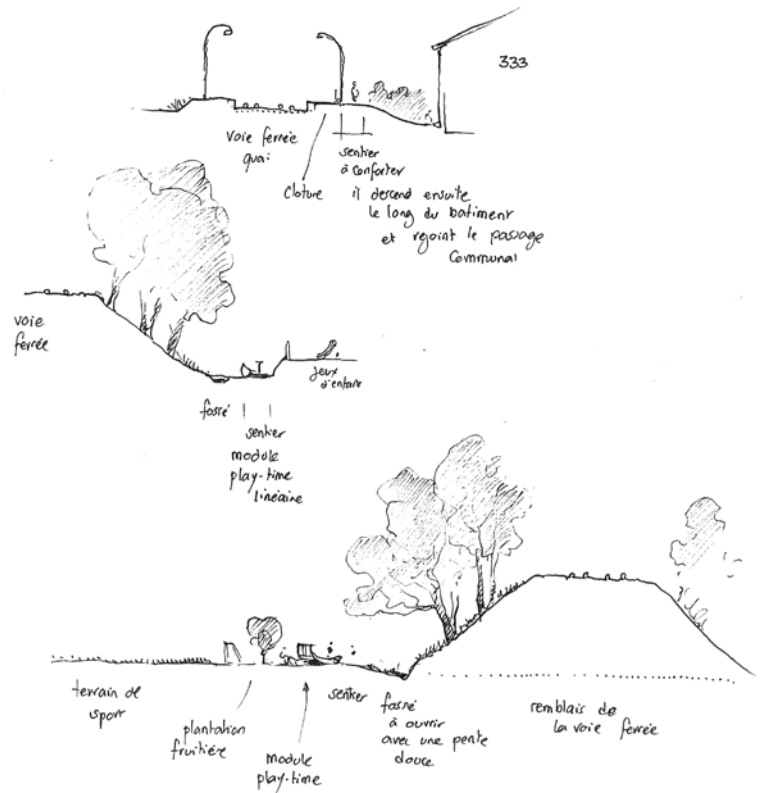 333
voie ferrée
quai
cloture
sentier
à conforter
il descend ensuite
le long du batiment
et rejoint le passage
communal
voie
ferrée
jeux
d'enfant
fossé
sentier
module
play-time
linéaire
terrain de
sport
plantation
fruitière
module
play-time
sentier
fossé
à ouvrir
avec une pente
douce
remblais de
la voie ferrée